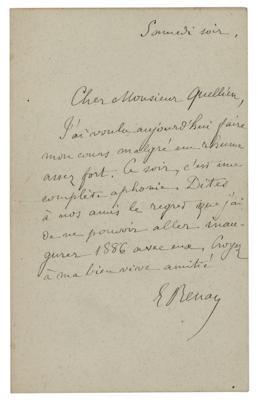 Samedi soir.
Cher Monsieur Quellien,
J'ai voulu aujourd'hui faire
mon cours malgré un rhume
assez fort. Ce soir, c'est une
complète aphonie. Dites
à nos amis le regret que j'ai
de ne pouvoir aller inau-
gurer 1886 avec eux. Croyez
à ma bien vive amitié
E Renan